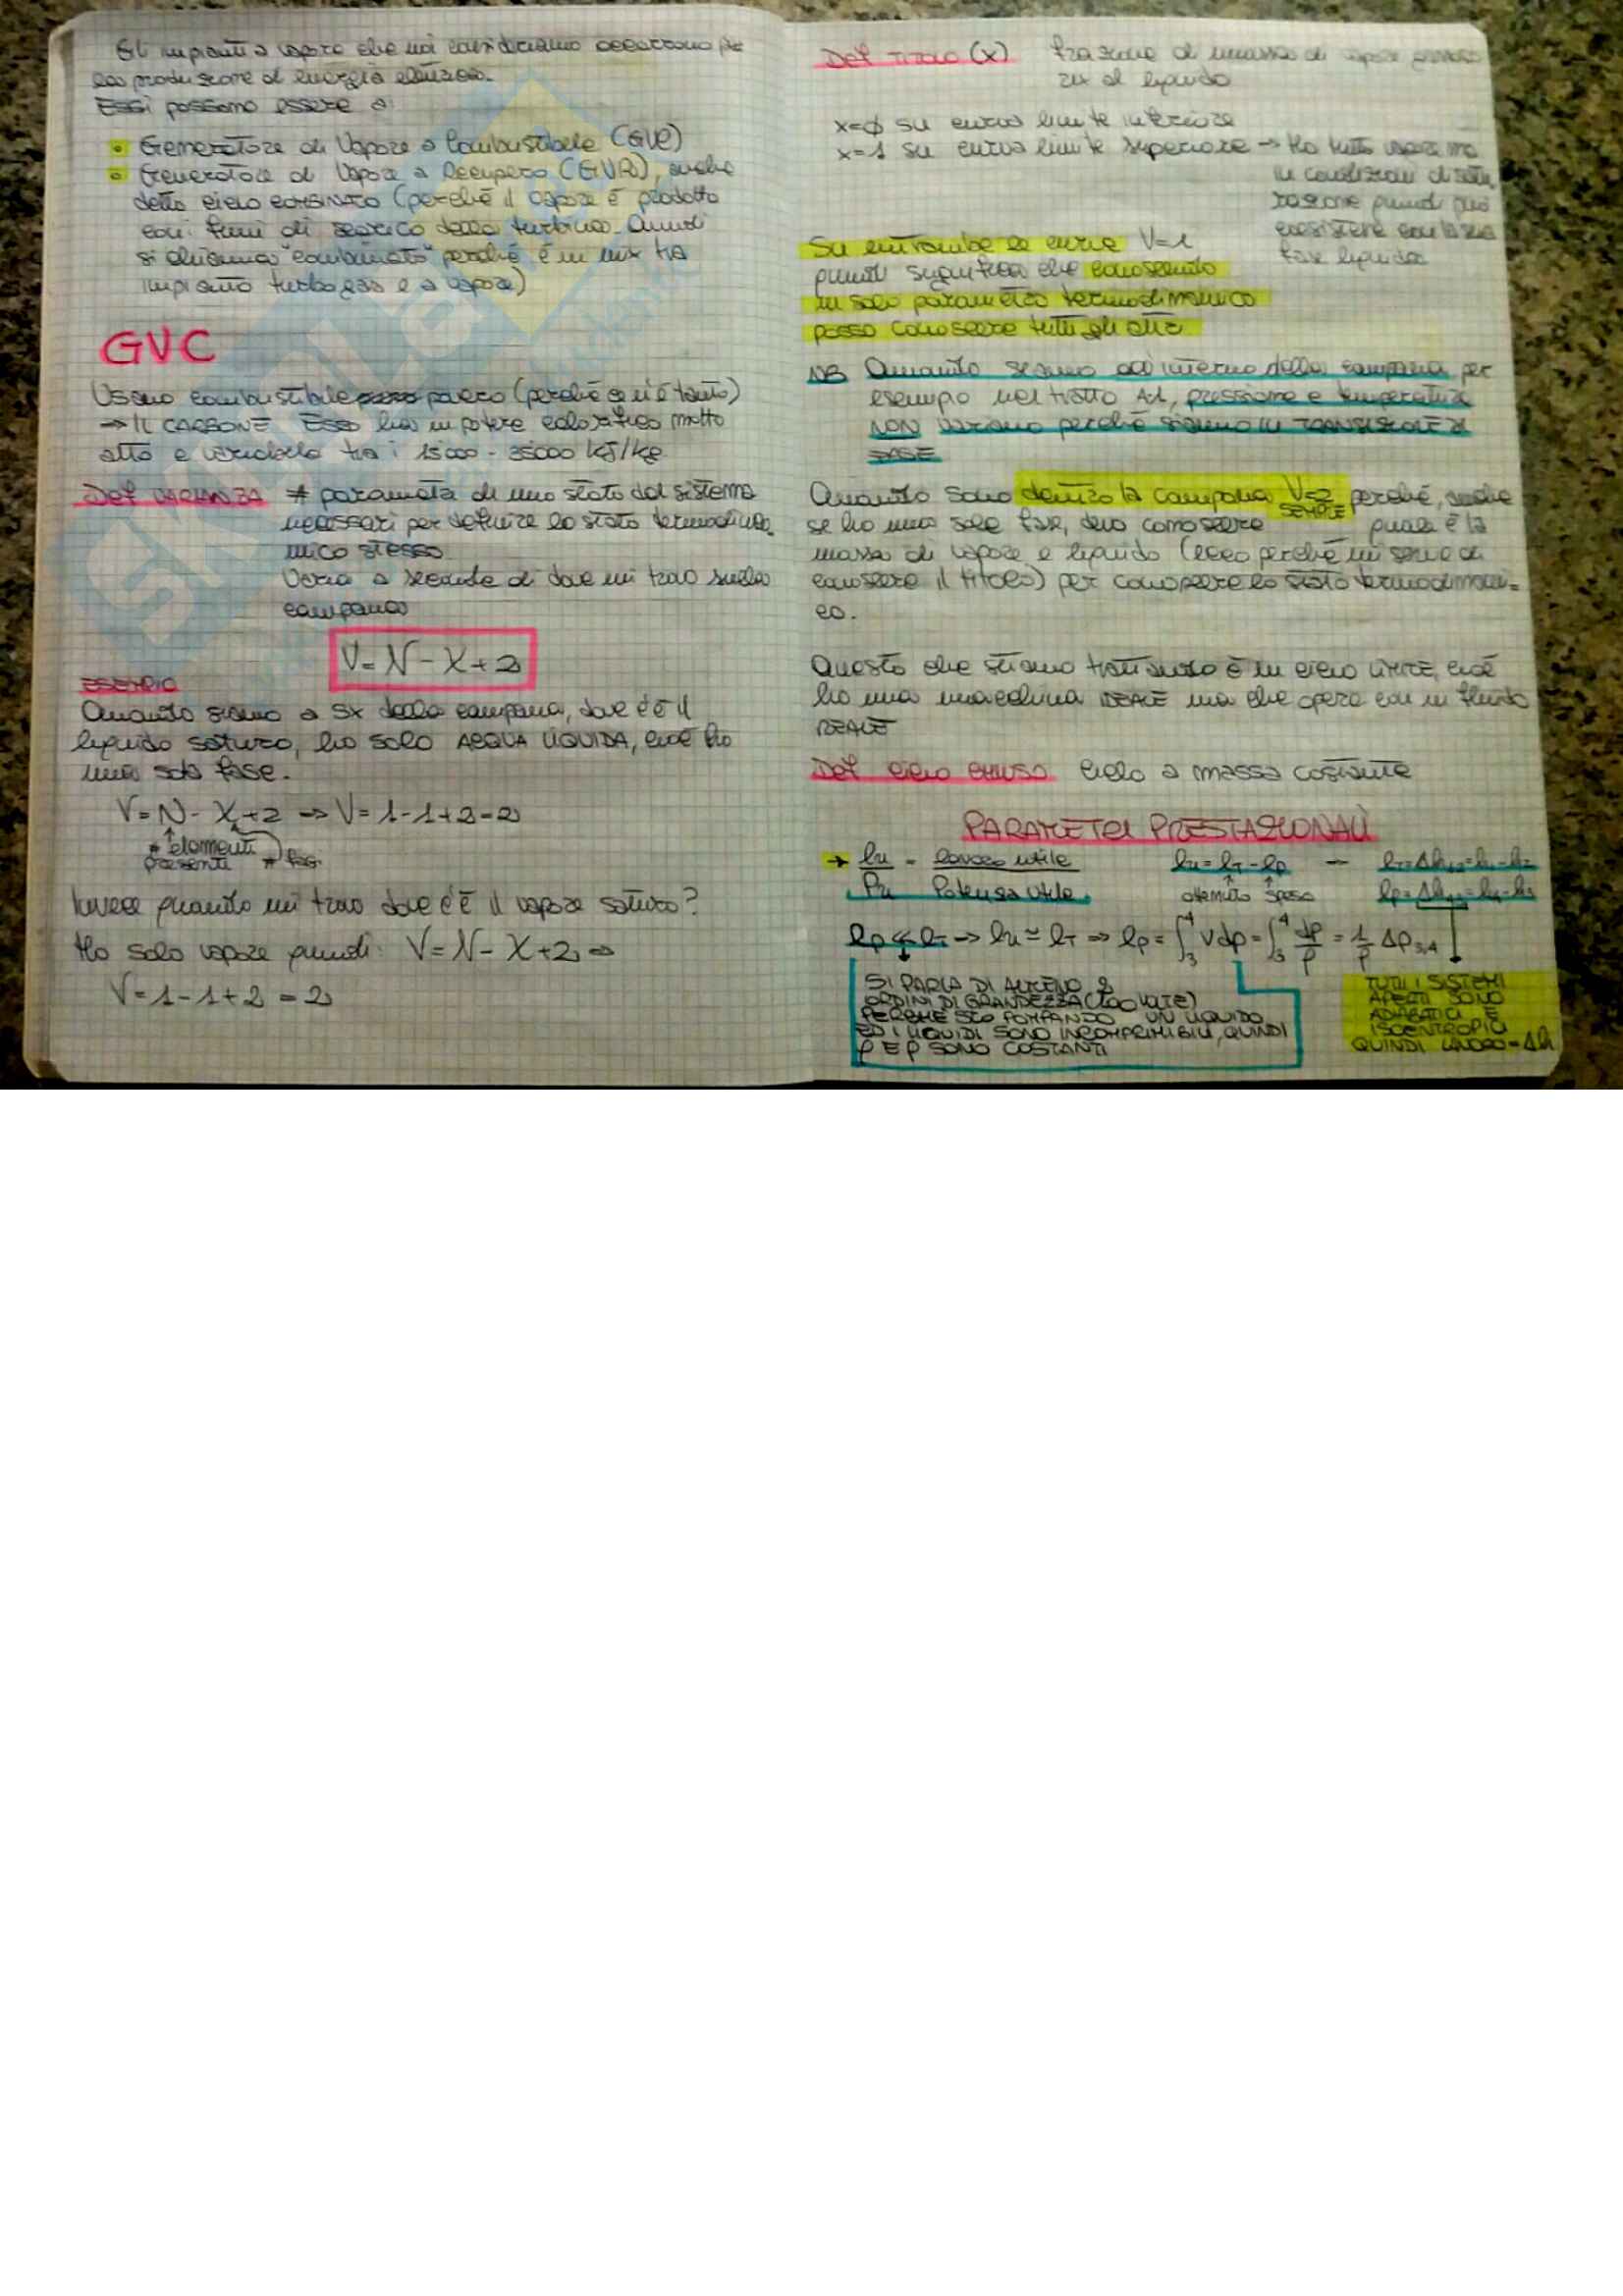 Gli impianti a vapore che noi consideriamo occorrono per
la produzione di energia elettrica.
Essi possono essere a:
Generatore di Vapore a Combustibile (GVC)
Generatore di Vapore a Recupero (GVR), anche
detto ciclo COMBINATO (perché il vapore è prodotto
con i fumi di scarico della turbina. Quindi
si chiama "combinato" perché è un mix tra
impianto turbogas e a vapore)
GVC
Usano combustibile povero (perché ce n'è tanto)
→ IL CARBONE Esso ha un potere calorifico molto
alto e variabile tra i 15000 - 35000 kJ/kg
Def VARIANZA # parametri di uno stato del sistema
necessari per definire lo stato termodina
mico stesso
Varia a seconda di dove mi trovo sulla
campana
V = N - X + 2
ESEMPIO
Quando siamo a sx della campana, dove c'è il
liquido saturo, ho solo ACQUA LIQUIDA, cioè ho
una sola fase.
V = N - X + 2 → V = 1 - 1 + 2 = 2
# elementi
presenti # fasi
Invece quando mi trovo dove c'è il vapore saturo?
Ho solo vapore quindi: V = N - X + 2 ⇒
V = 1 - 1 + 2 = 2
Def TITOLO (x) frazione di massa di vapore
al liquido
x=ϕ su curva limite inferiore
x=1 su curva limite superiore → Ho tutto vapore ma
in condizioni di satu
razione quindi può
coesistere con la sua
fase liquida
Su entrambe le curve V=1
quindi significa che conoscendo
un solo parametro termodinamico
posso conoscere tutti gli altri
NB Quando siamo all'interno della campana per
esempio nel tratto A1, pressione e temperatura
NON variano perché siamo in TRANSIZIONE DI
FASE
Quando sono dentro la campana V=2 perché, anche
SEMPRE
se ho una sola fase, devo conoscere quale è la
massa di vapore e liquido (ecco perché mi serve di
conoscere il titolo) per conoscere lo stato termodinami-
co.
Questo che stiamo trattando è un ciclo LIMITE, cioè
ho una macchina IDEALE ma che opera con un fluido
REALE
Def ciclo CHIUSO Ciclo a massa costante
PARAMETRI PRESTAZIONALI
→ lu = lavoro utile lu = lT - lP → lT = Δh1,2 = h1 - h2
Pu Potenza utile ottenuto speso lP = Δh4,3 = h4 - h3
lP ≪ lT → lu ≃ lT ⇒ lP = ∫₃⁴ v dp = ∫₃⁴ dp/ρ = 1/ρ Δp3,4
SI PARLA DI ALMENO 2
ORDINI DI GRANDEZZA (100 VOLTE)
PERCHÉ STO POMPANDO UN LIQUIDO
ED I LIQUIDI SONO INCOMPRIMIBILI, QUINDI
ρ E ρ SONO COSTANTI
TUTTI I SISTEMI
APERTI SONO
ADIABATICI E
ISOENTROPICI
QUINDI LAVORO = Δh